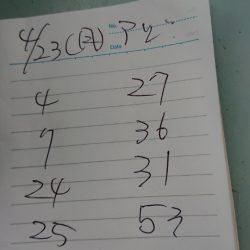 4/23(日)
No.
Date
4 27
7 36
24 31
25 53